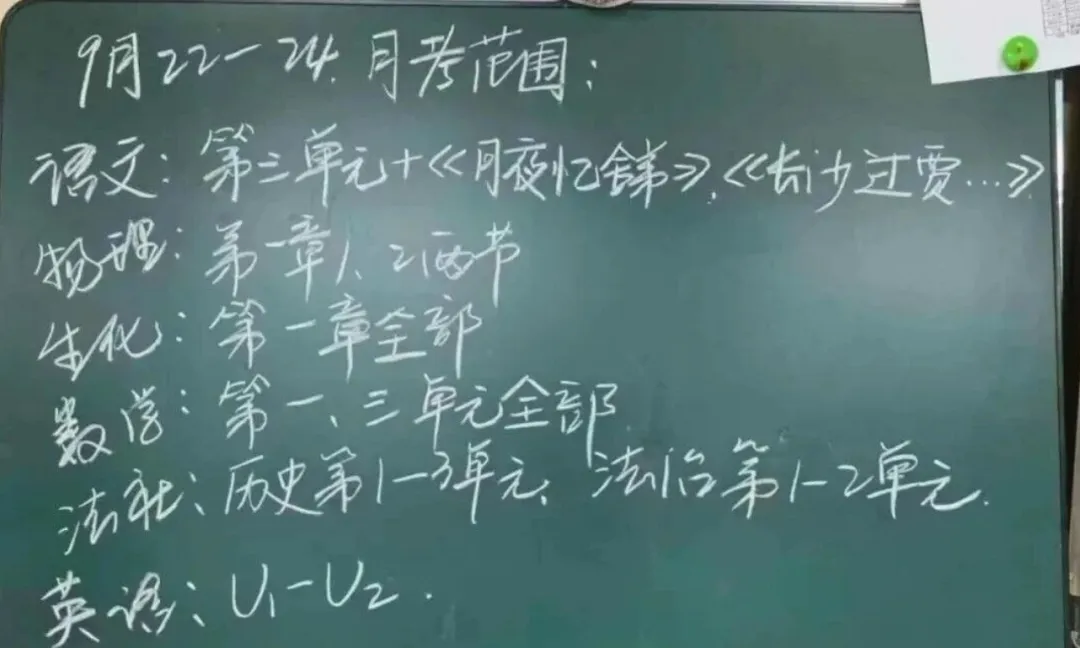 9月22-24.月考范围:
语文: 第三单元+《月夜忆舍弟》,《长沙过贾...》
物理: 第一章1、2两节
生化: 第一章全部
数学: 第一、三单元全部
法社: 历史第1-3单元, 法治第1-2单元.
英语: U1-U2.